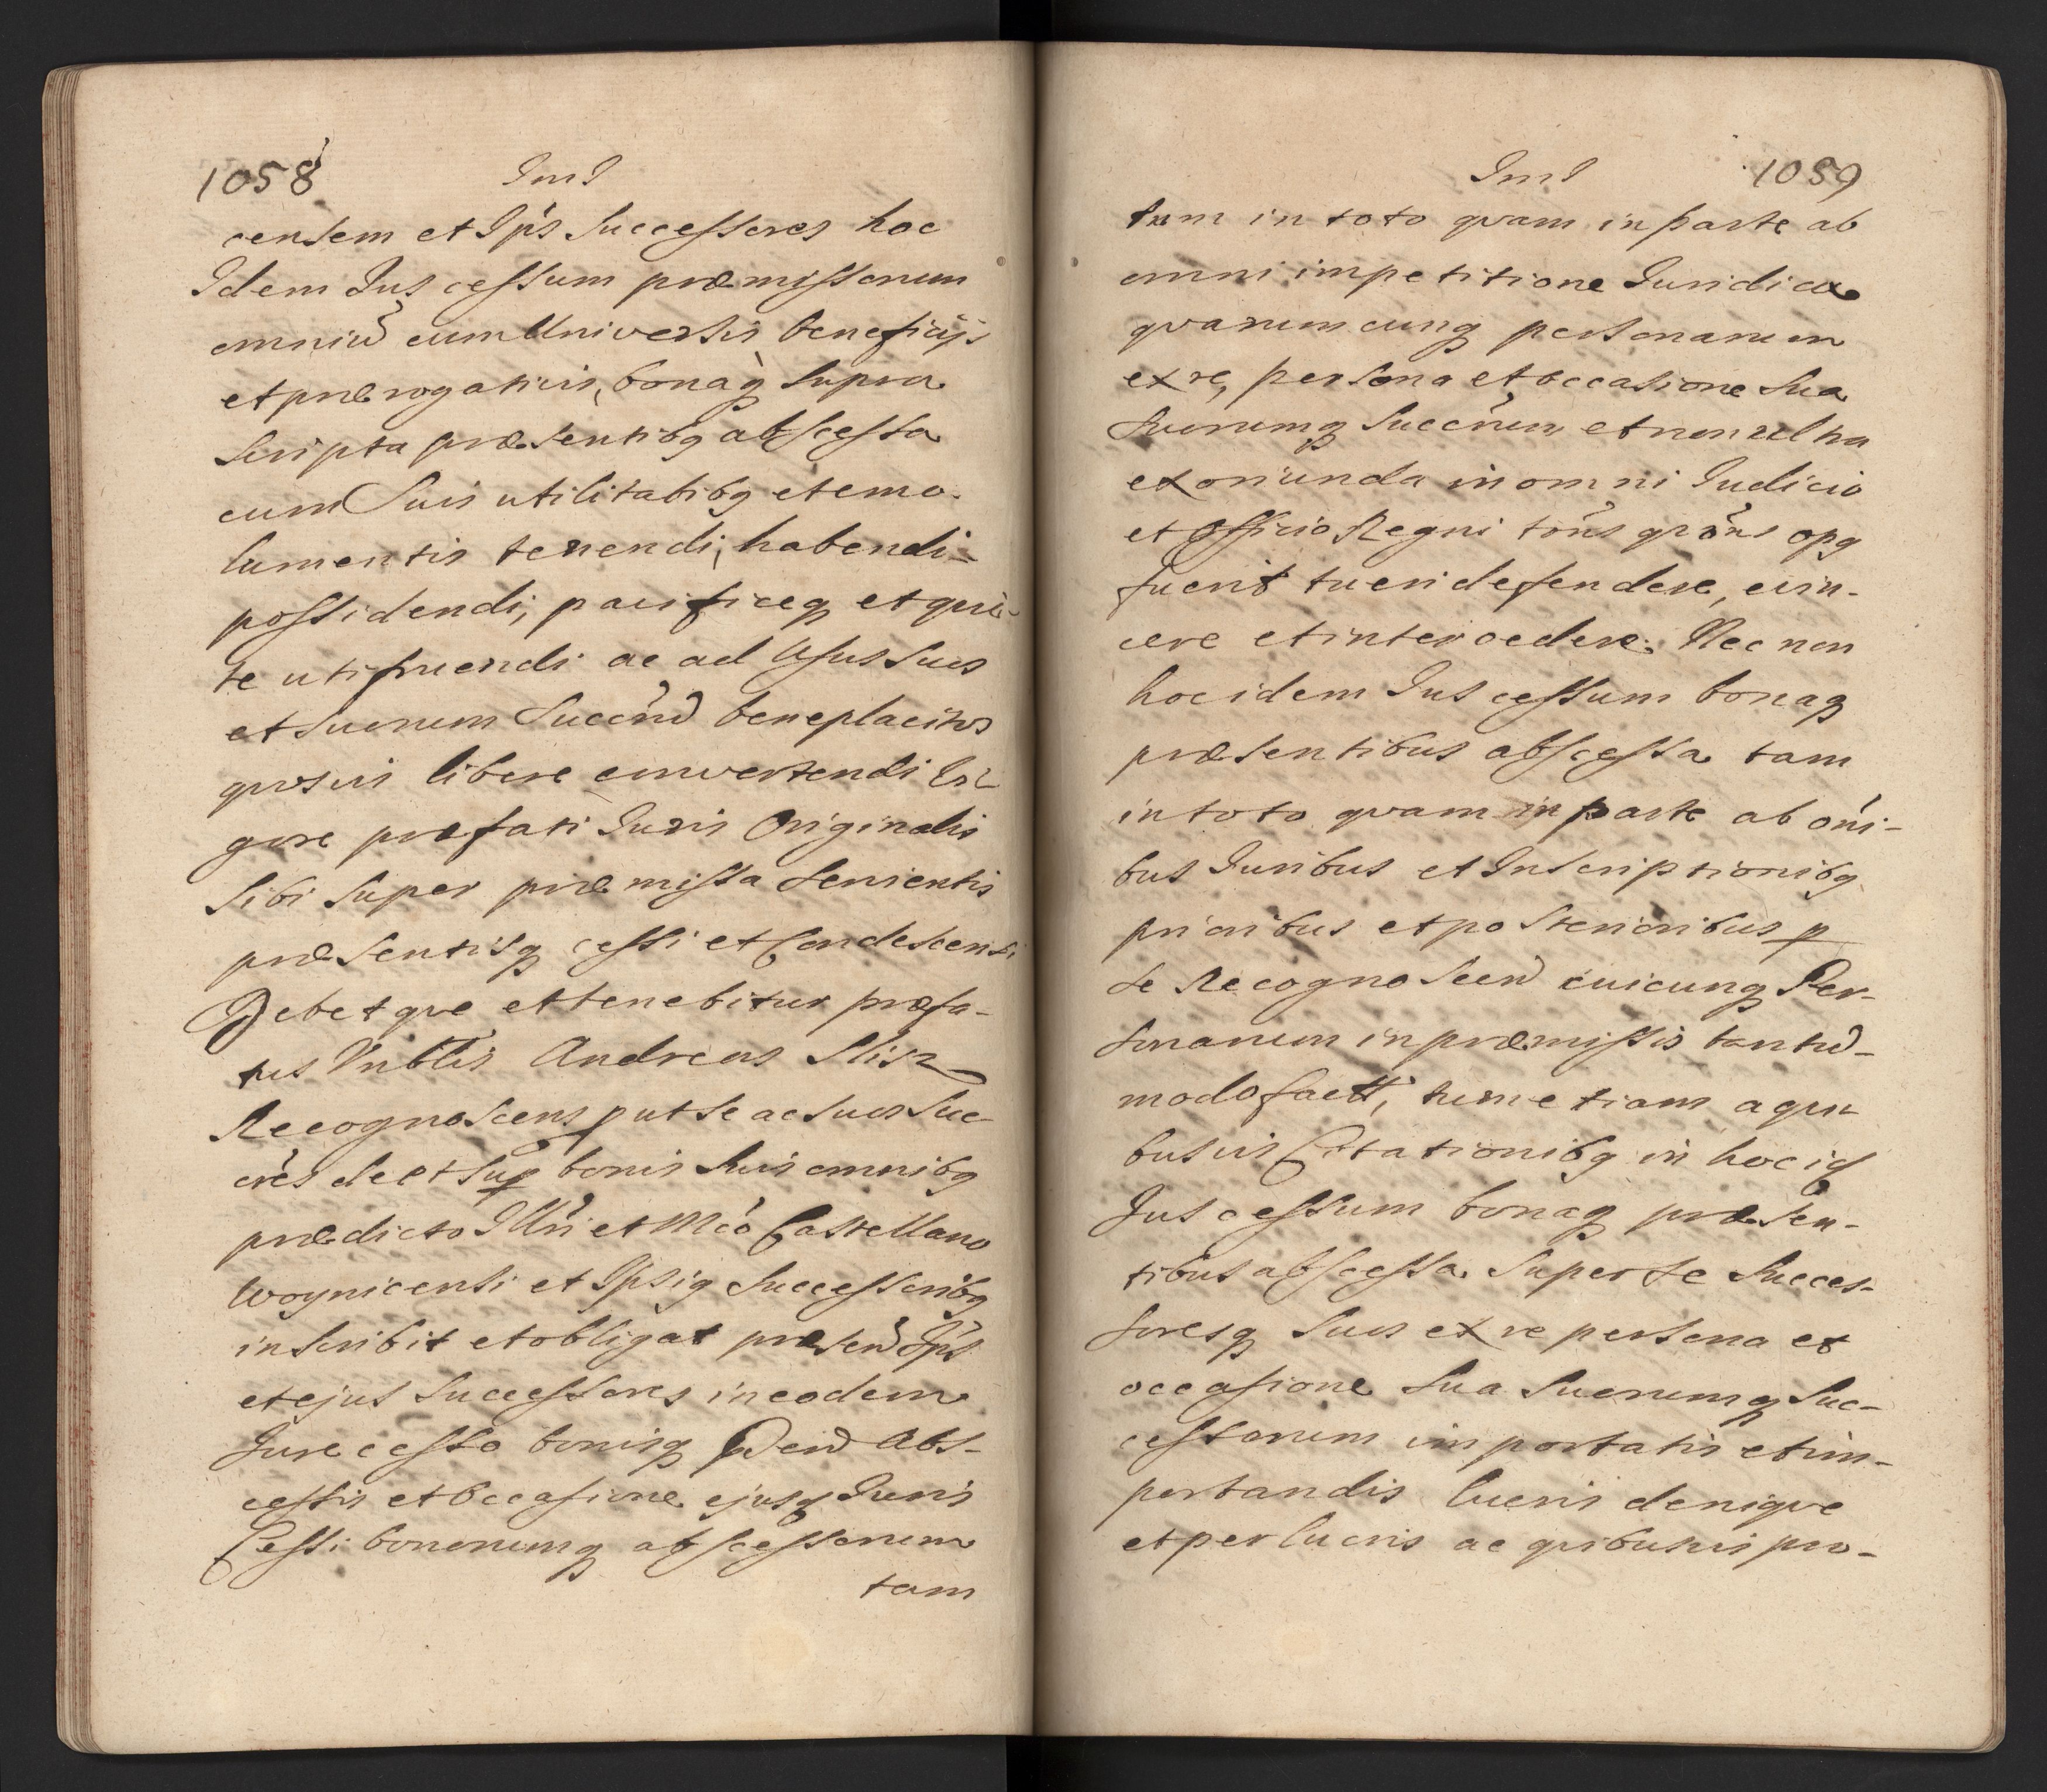 1058
JmJ
censem et Ip̃s Successores hoc
Idem Jus cessum præmissorum
omniũ cum Universis beneficijs
et prærogativis, bonaq; supra
scripta præsentibq abscessa
cum Suis utilitatibq et emo-
lumentis tenendi, habendi-
possidendi, pacificeq; et qvie-
te utifruendi ac ad Usus suos
et suorum Succor̃ũ beneplacitos
qvosvis libere convertendi Vi-
gore præfati Juris Originalis
Sibi super præmissa servientis
præsentisq; cessi et Condescensi
Debetqve et tenebitur præfa-
tus Vrıb̃lis Andreas
Recognoscens put se ac suos Suc-
cor̃es de et sup bonis suis omnibq
prædicto Illr̃i et Mc̃o Castellano
Woynicensi et Ipsiq Successoribq
inscribit et obligat præsen̄ Ip̃s
et ejus Successores in eodem
Jure cesso bonisq; Pen̄ Abs-
cessis et occasione ejusq Juris
Cessi bonorumq; abscessorum
tam
JmJ
1059
tam in toto qvam in parte ab
omni impetitione Juridica
qvarumcunq; personarum
ex re, persona et occasione sua
suorumq; Succor̃um et non ultra
exoriunda in omni Judicio
et Officio Regni tõns qrõns opq
fuerit tueri defendere, evin-
cere et intercedere. Nec non
hoc idem Jus cessum bonaq;
præsentibus abscessa tam
in toto qvam in parte ab õni-
bus Juribus et Inscriptionibq
prioribus et posterioribus p
se Recognoscen̄ cuicunq; Per-
sonarum in præmissis tantũ-
modo factt, tum etiam a qvi-
busvis Citationibq in hoc id
Jus cessum bonaq; præsen-
tibus abscessa super se Succes-
soresq; suos ex re persona et
occasione sua suorumq; Suc-
cessorum importatis et im-
portandis lucris deniqve
et perlucris ac qvibusvis pro-